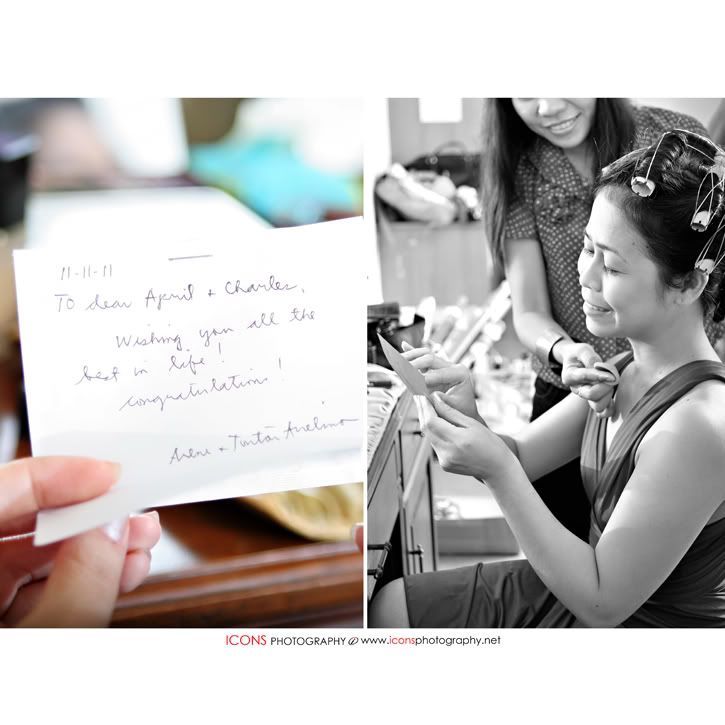 11-11-11
To dear April + Charles,
Wishing you all the
best in life!
congratulations!
+ Tintin Avelino
ICONS PHOTOGRAPHY @ www.iconsphotography.net